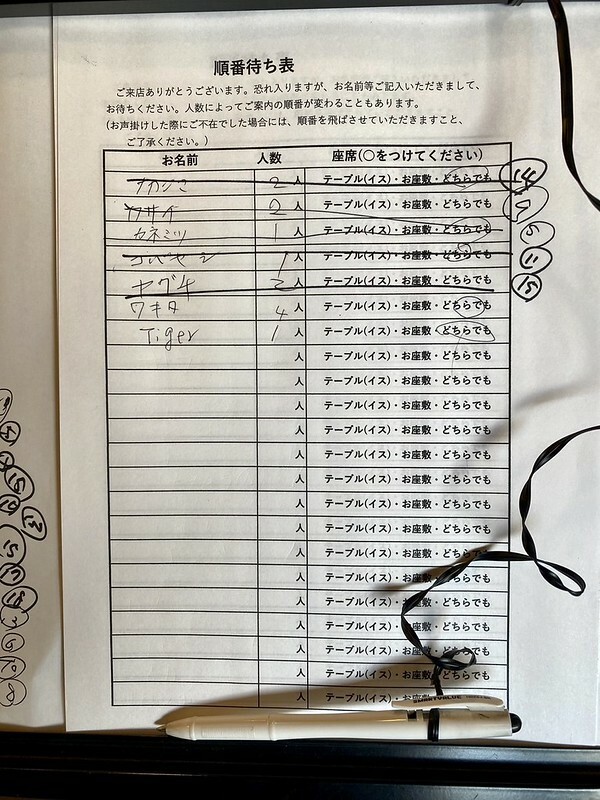 順番待ち表
ご来店ありがとうございます。恐れ入りますが、お名前等ご記入いただきまして、
お待ちください。人数によってご案内の順番が変わることもあります。
(お声掛けした際にご不在でした場合には、順番を飛ばさせていただきますこと、
ご了承ください。)
お名前 人数 座席(○をつけてください)
2人 テーブル(イス)・お座敷・どちらでも 14
2人 テーブル(イス)・お座敷・どちらでも
カネミツ 1人 テーブル(イス)・お座敷・どちらでも 5
コバヤシ 1人 テーブル(イス)・お座敷・どちらでも 11
ヤグチ 2人 テーブル(イス)・お座敷・どちらでも 15
ワキタ 4人 テーブル(イス)・お座敷・どちらでも
Tiger 1人 テーブル(イス)・お座敷・どちらでも
人 テーブル(イス)・お座敷・どちらでも
人 テーブル(イス)・お座敷・どちらでも
人 テーブル(イス)・お座敷・どちらでも
人 テーブル(イス)・お座敷・どちらでも
人 テーブル(イス)・お座敷・どちらでも
人 テーブル(イス)・お座敷・どちらでも
人 テーブル(イス)・お座敷・どちらでも
人 テーブル(イス)・お座敷・どちらでも
人 テーブル(イス)・お座敷・どちらでも
人 テーブル(イス)・お座敷・どちらでも
人 テーブル(イス)・お座敷・どちらでも
人 テーブル(イス)・お座敷・どちらでも
人 テーブル(イス)・お座敷・どちらでも
人 テーブル(イス)・お座敷・どちらでも
人 テーブル(イス)・お座敷・どちらでも
SMARTVALUE